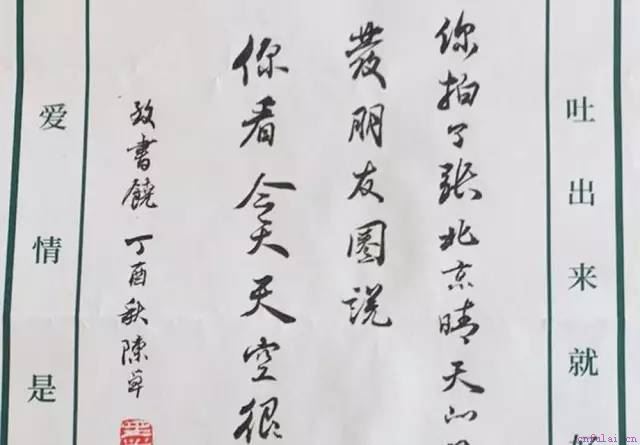 吐出来就
你拍了张北京晴天的
發朋友圈说
你看今天天空很
致書饒 丁酉秋陳卓
爱情是
cnfulai.cn